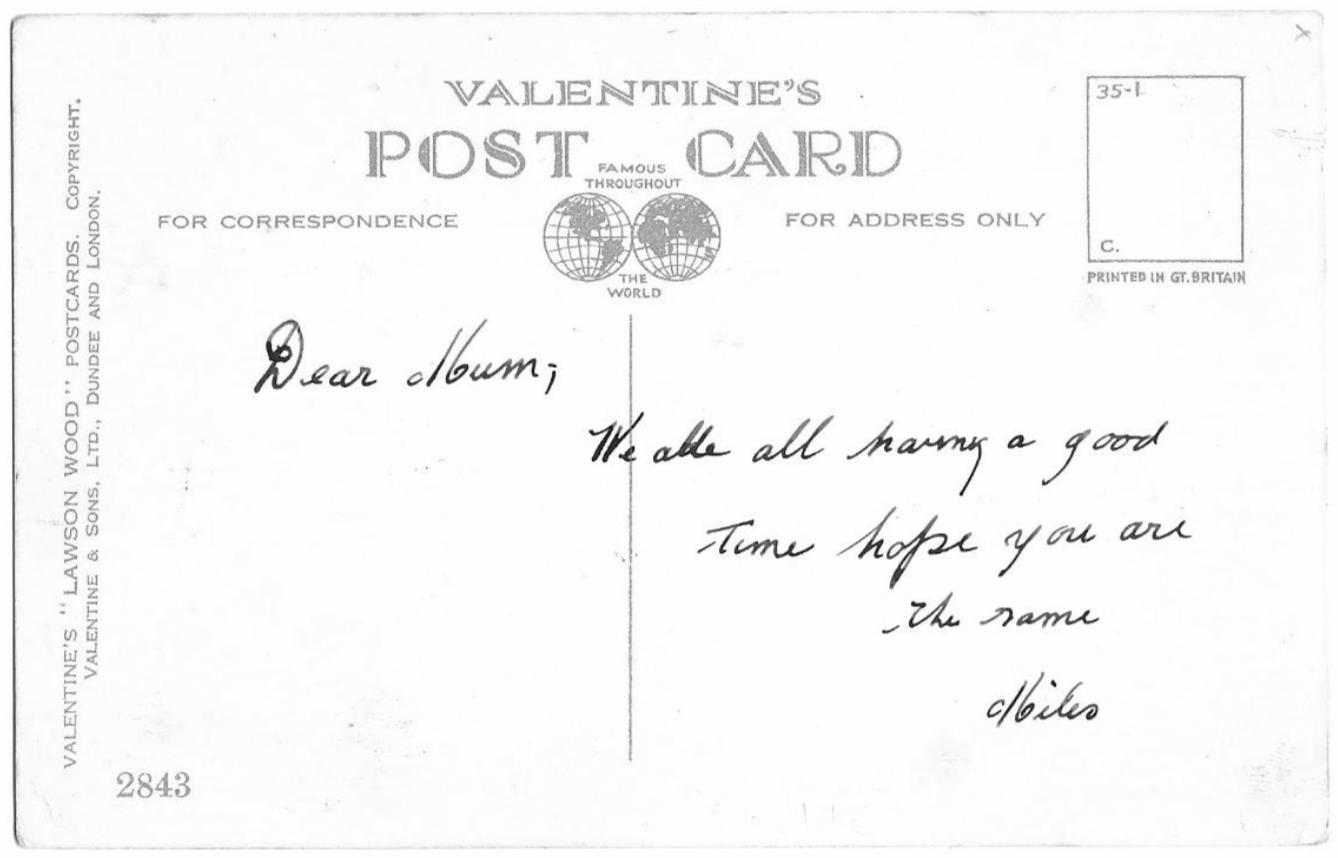 VALENTINE'S
POST CARD
FAMOUS
THROUGHOUT
THE
WORLD
FOR CORRESPONDENCE
FOR ADDRESS ONLY
35-1
C.
PRINTED IN GT. BRITAIN
VALENTINE'S "LAWSON WOOD" POSTCARDS. COPYRIGHT.
VALENTINE & SONS, LTD., DUNDEE AND LONDON.
Dear Mum;
We are all having a good
Time hope you are
the same
Miles
2843